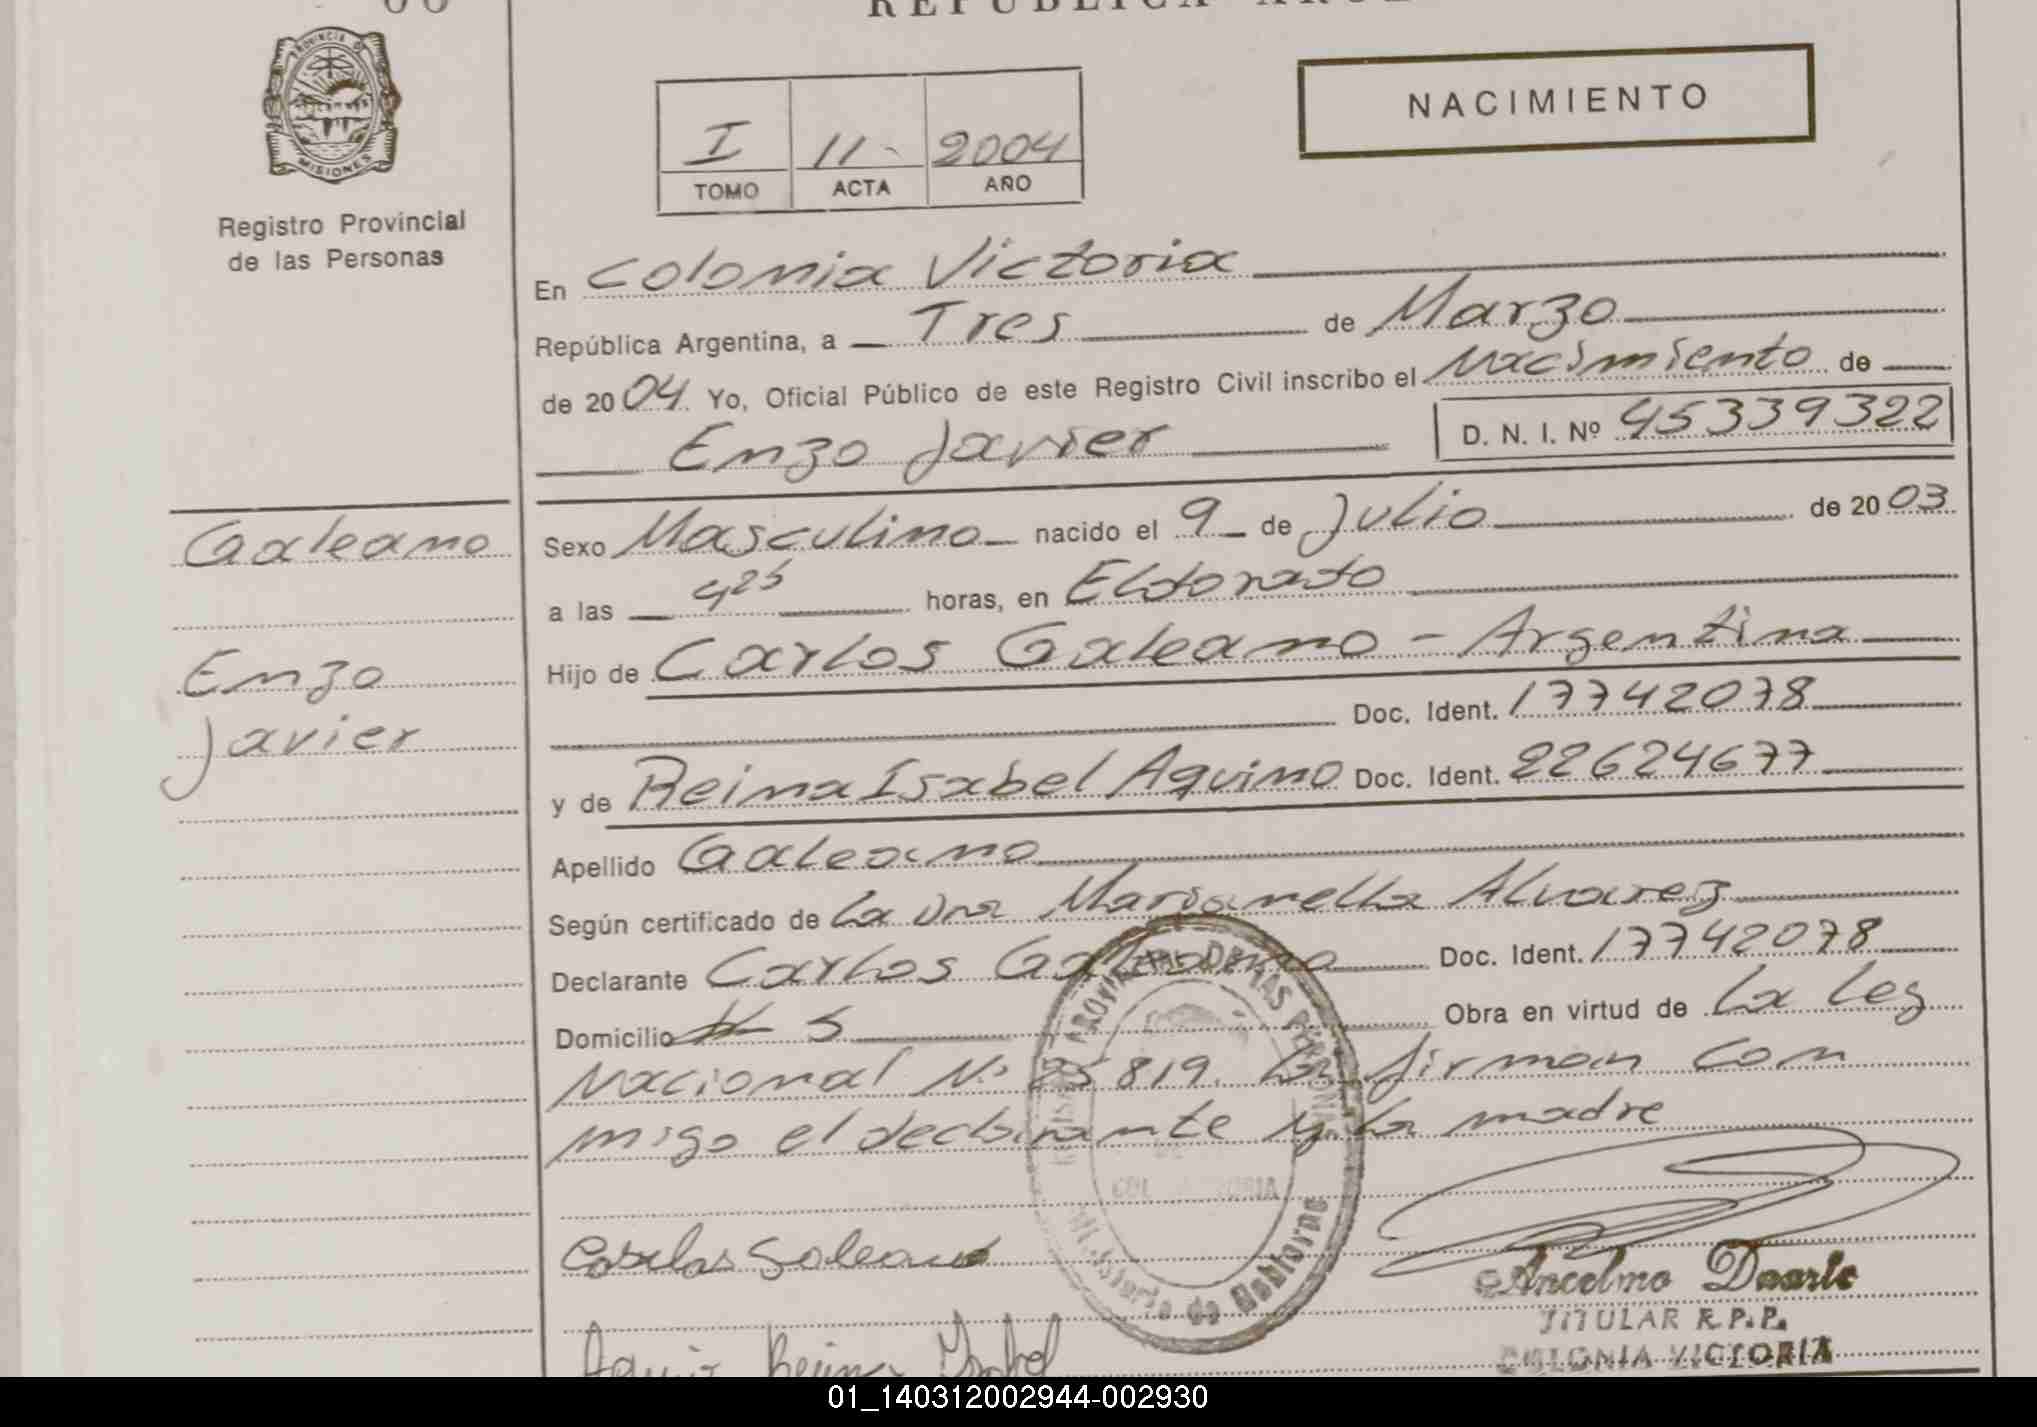 REPUBLICA
PROVINCIA DE
MISIONES
Registro Provincial
de las Personas
NACIMIENTO
I 11 2004
TOMO ACTA AÑO
En Colonia Victoria
República Argentina, a Tres de Marzo
de 2004 Yo, Oficial Público de este Registro Civil inscribo el Nacimiento de
Enzo Javier D. N. I. Nº 45339322
Galeano
Enzo
Javier
Sexo Masculino nacido el 9 de Julio de 2003
a las horas, en Eldorado
Hijo de Carlos Galeano - Argentina
Doc. Ident. 17742078
y de Reina Isabel Aquino Doc. Ident. 22624677
Apellido Galeano
Según certificado de La Dra Marianella Alvarez
Declarante Carlos Galeano Doc. Ident. 17742078
Domicilio Obra en virtud de La Ley
Nacional Nº 25819. firman con
migo el declarante y la madre
Carlos Galeano
Aquino Reina Isabel
de Gobierno
Ancelmo Duarte
TITULAR R.P.P.
COLONIA VICTORIA
01_140312002944-002930